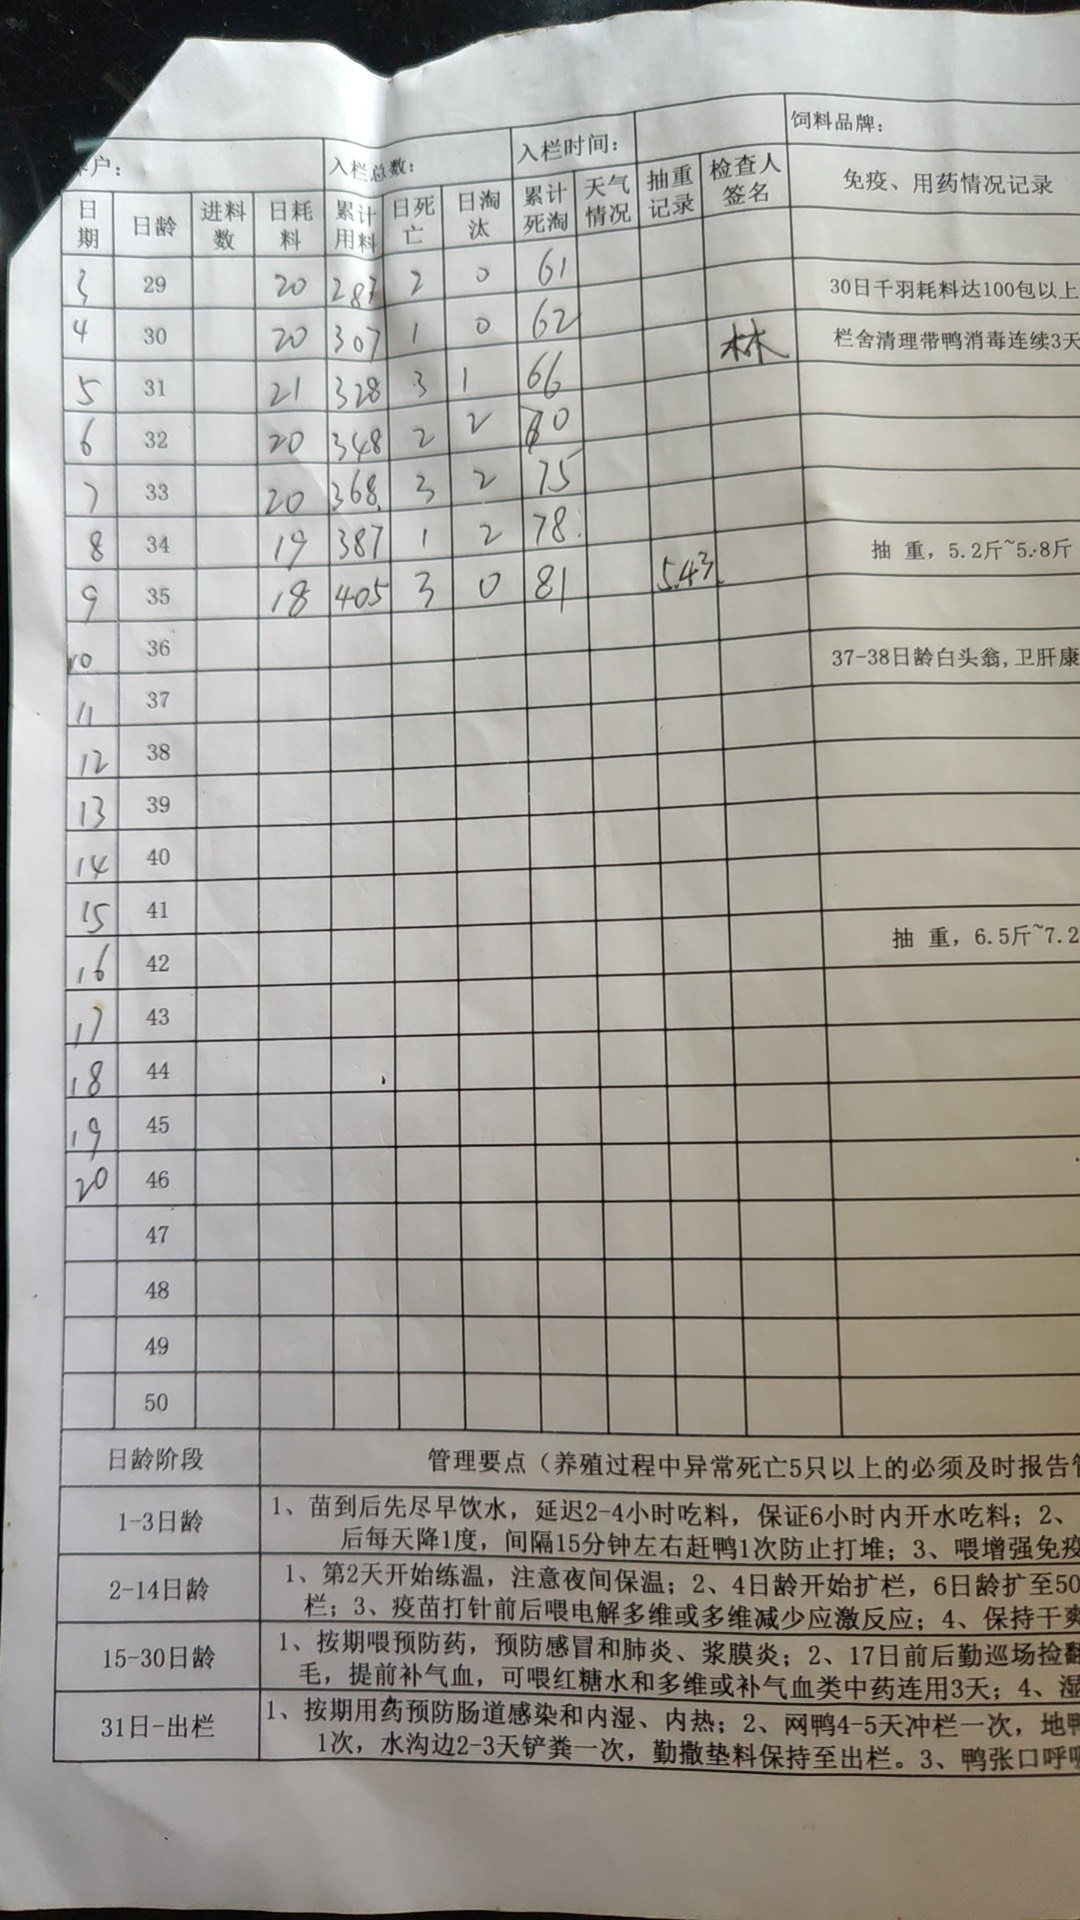 户： 入栏总数： 入栏时间： 饲料品牌：
日期 日龄 进料数 日耗料 累计用料 日死亡 日淘汰 累计死淘 天气情况 抽重记录 检查人签名 免疫、用药情况记录
3 29 20 287 2 0 61 30日千羽耗料达100包以上
4 30 20 307 1 0 62 林 栏舍清理带鸭消毒连续3天
5 31 21 328 3 1 66
6 32 20 348 2 2 70
7 33 20 368 3 2 75
8 34 19 387 1 2 78 抽 重，5.2斤~5.8斤
9 35 18 405 3 0 81 5.43
10 36 37-38日龄白头翁,卫肝康
11 37
12 38
13 39
14 40
15 41
16 42 抽 重，6.5斤~7.2
17 43
18 44
19 45
20 46
47
48
49
50
日龄阶段 管理要点（养殖过程中异常死亡5只以上的必须及时报告
1-3日龄 1、苗到后先尽早饮水，延迟2-4小时吃料，保证6小时内开水吃料；2、
后每天降1度，间隔15分钟左右赶鸭1次防止打堆；3、喂增强免疫
2-14日龄 1、第2天开始练温，注意夜间保温；2、4日龄开始扩栏，6日龄扩至50
栏；3、疫苗打针前后喂电解多维或多维减少应激反应；4、保持干爽
15-30日龄 1、按期喂预防药，预防感冒和肺炎、浆膜炎；2、17日前后勤巡场捡翻
毛，提前补气血，可喂红糖水和多维或补气血类中药连用3天；4、湿
31日-出栏 1、按期用药预防肠道感染和内湿、内热；2、网鸭4-5天冲栏一次，地鸭
1次，水沟边2-3天铲粪一次，勤撒垫料保持至出栏。3、鸭张口呼吸